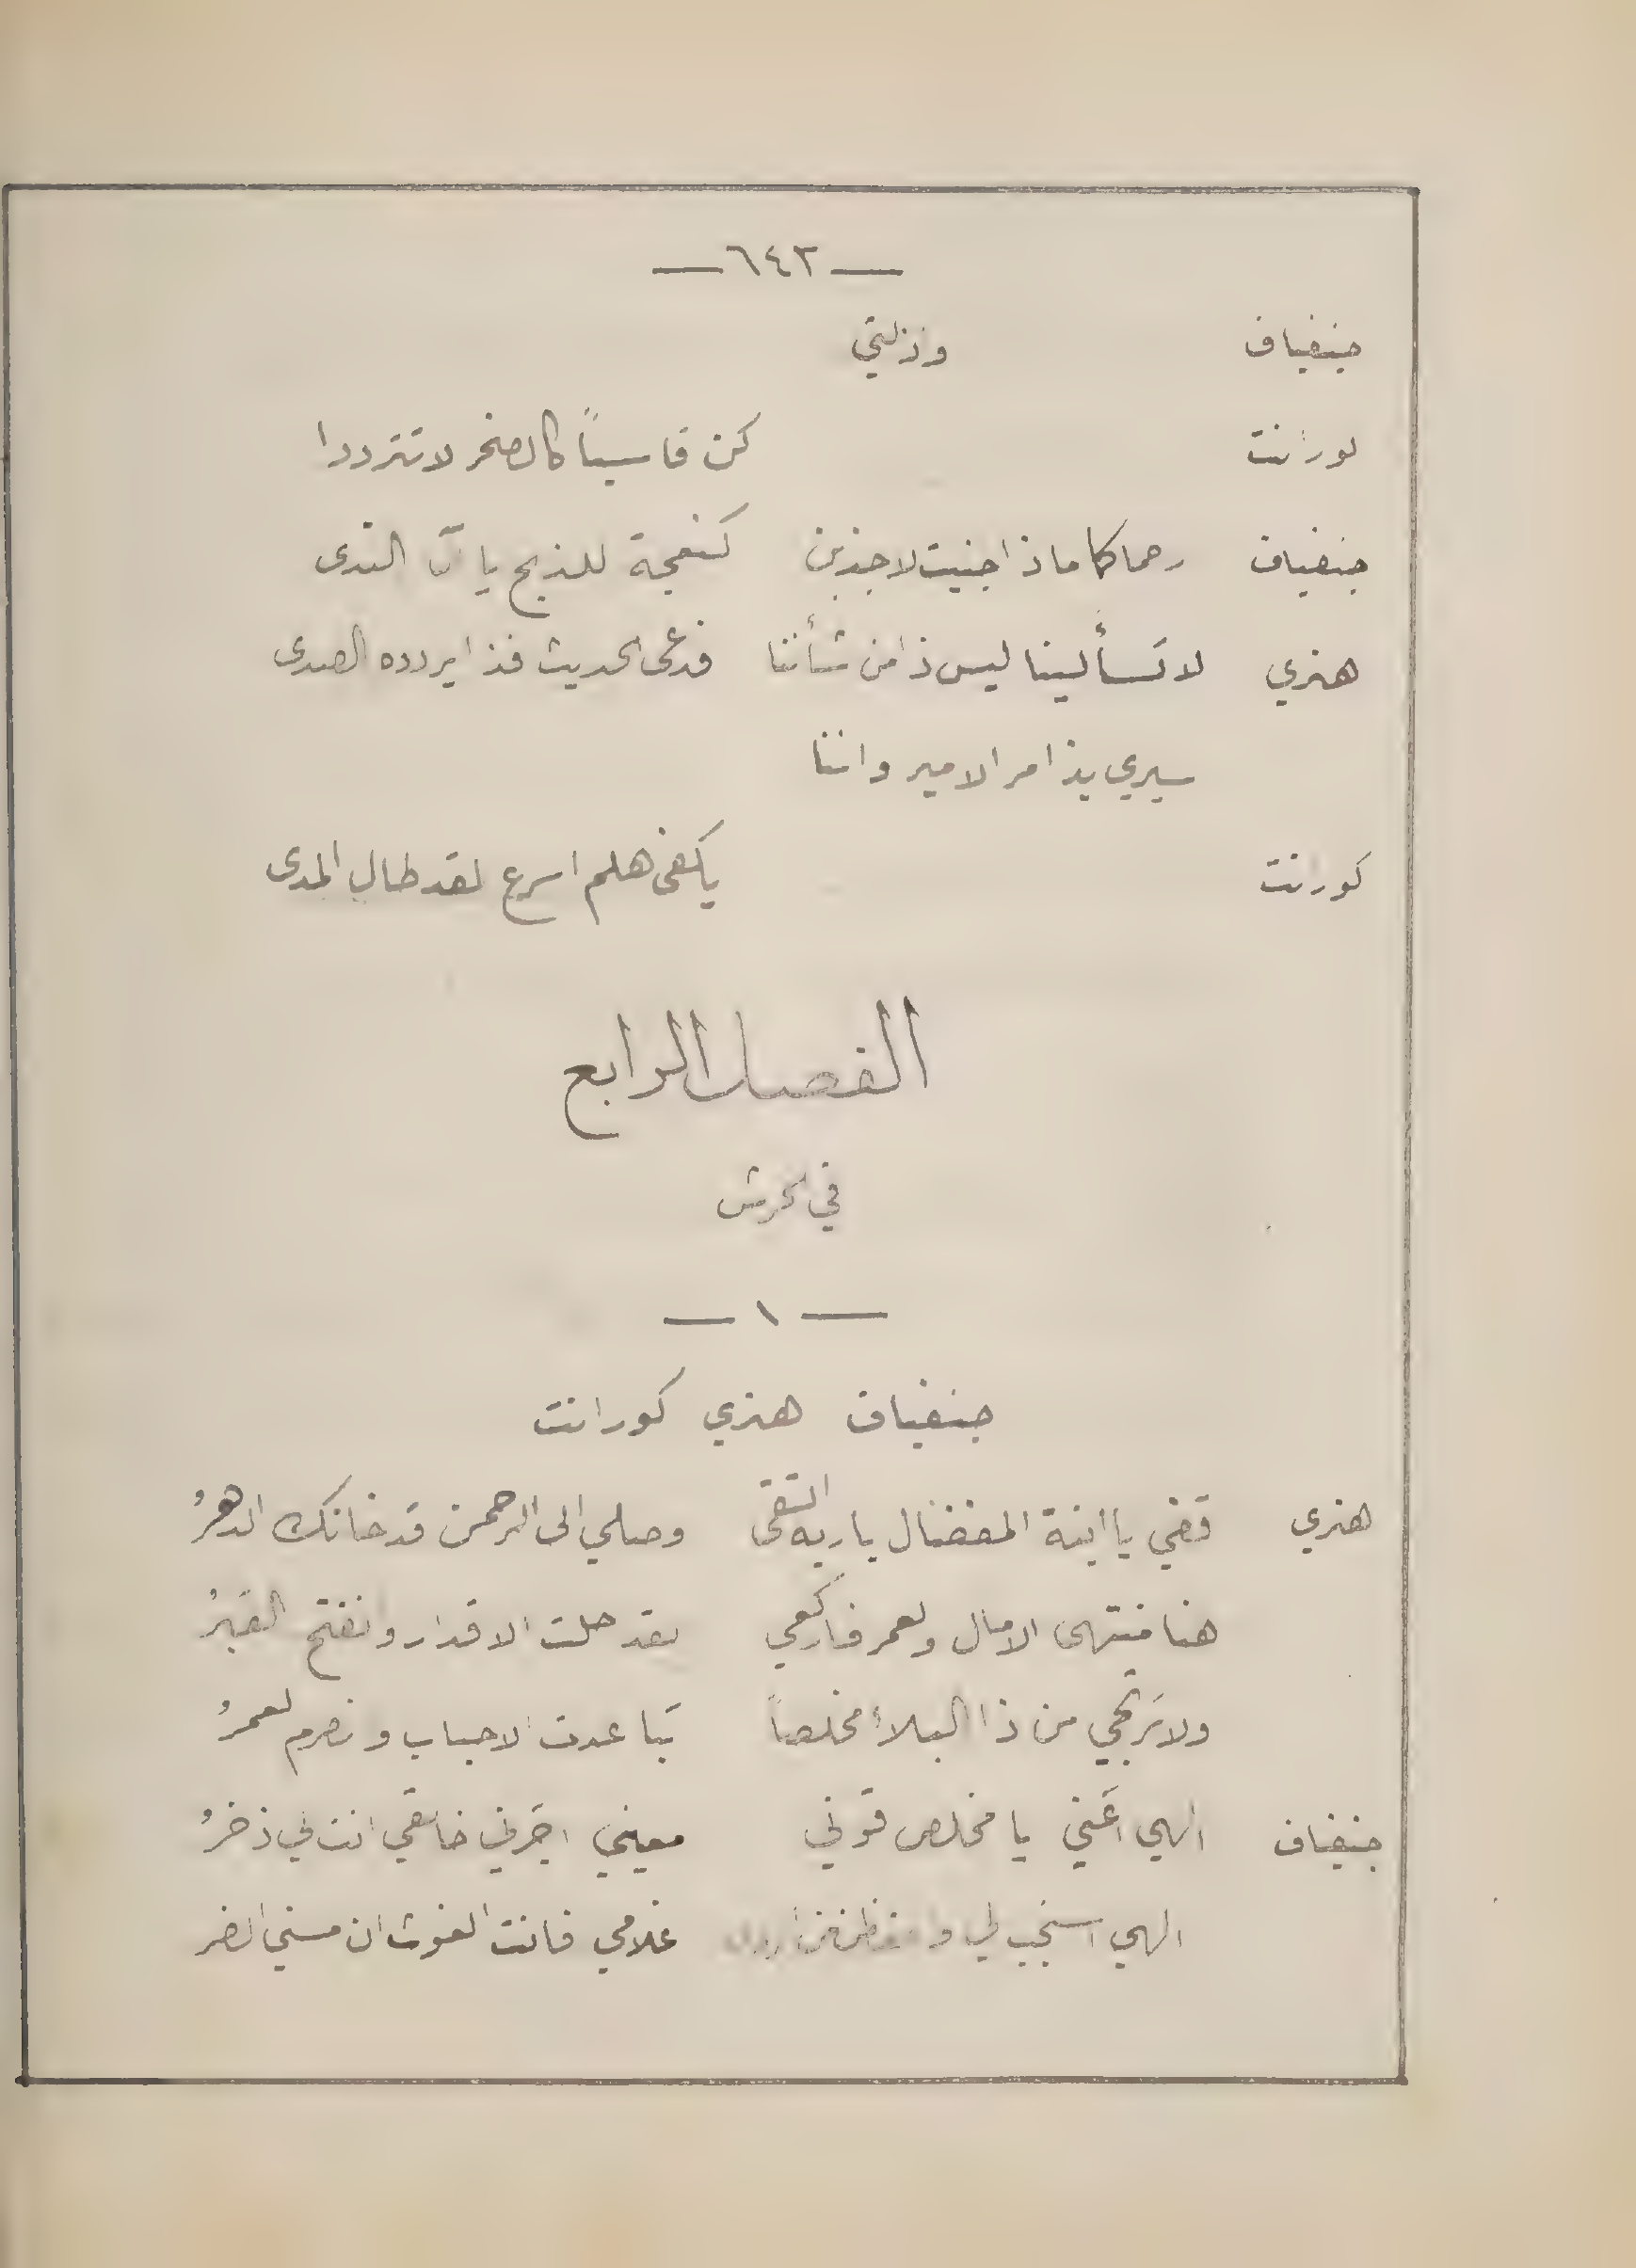 —٦٤٣—
جنفياف وذلتي
كورانت كن قاسياً كالصخر لا تترددا
جنفياف رحماكما ماذا جنيت لاجذبن كنعجة للذبح يا آل الندى
هنري لا تسألينا ليس ذا من شأننا فدعي الحديث فذا يردده الصدى
سيري بذا امر الامير واننا
كورانت يكفي هلم اسرع لقد طال المدى
الفصل الرابع
في الحرش
— ١ —
جنفياف هنري كورانت
هنري قفي يا ابنة المفضال يا ربة التقى وصلي الى الرحمن قد خانك الدهرُ
هنا منتهى الامال والعمر فاركعي لقد حلت الاقدار وانفتح القبرُ
ولا ترتجي من ذا البلاء مخلصاً تباعدت الاحباب وانصرم العمرُ
جنفياف الهي اغثني يا مخلص قوني معيني اجرني خالقي انت لي ذخرُ
الهي استجب لي غلامي فانت الغوث ان مسني الضر